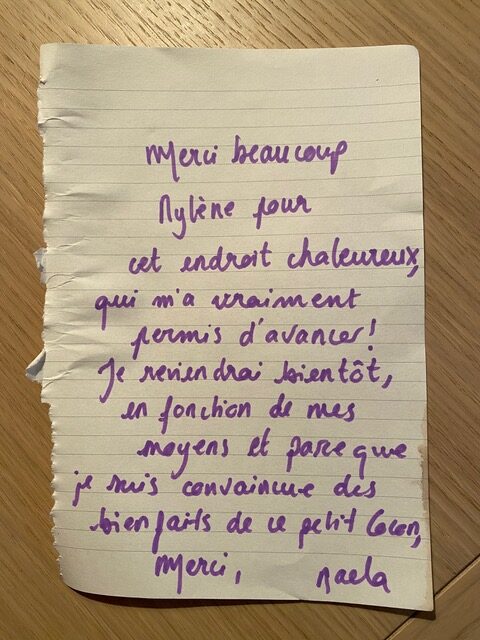 Merci beaucoup
Mylène pour
cet endroit chaleureux,
qui m'a vraiment
permis d'avancer!
Je reviendrai bientôt,
en fonction de mes
moyens et parce que
je suis convaincue des
bienfaits de ce petit Cocon,
Merci,